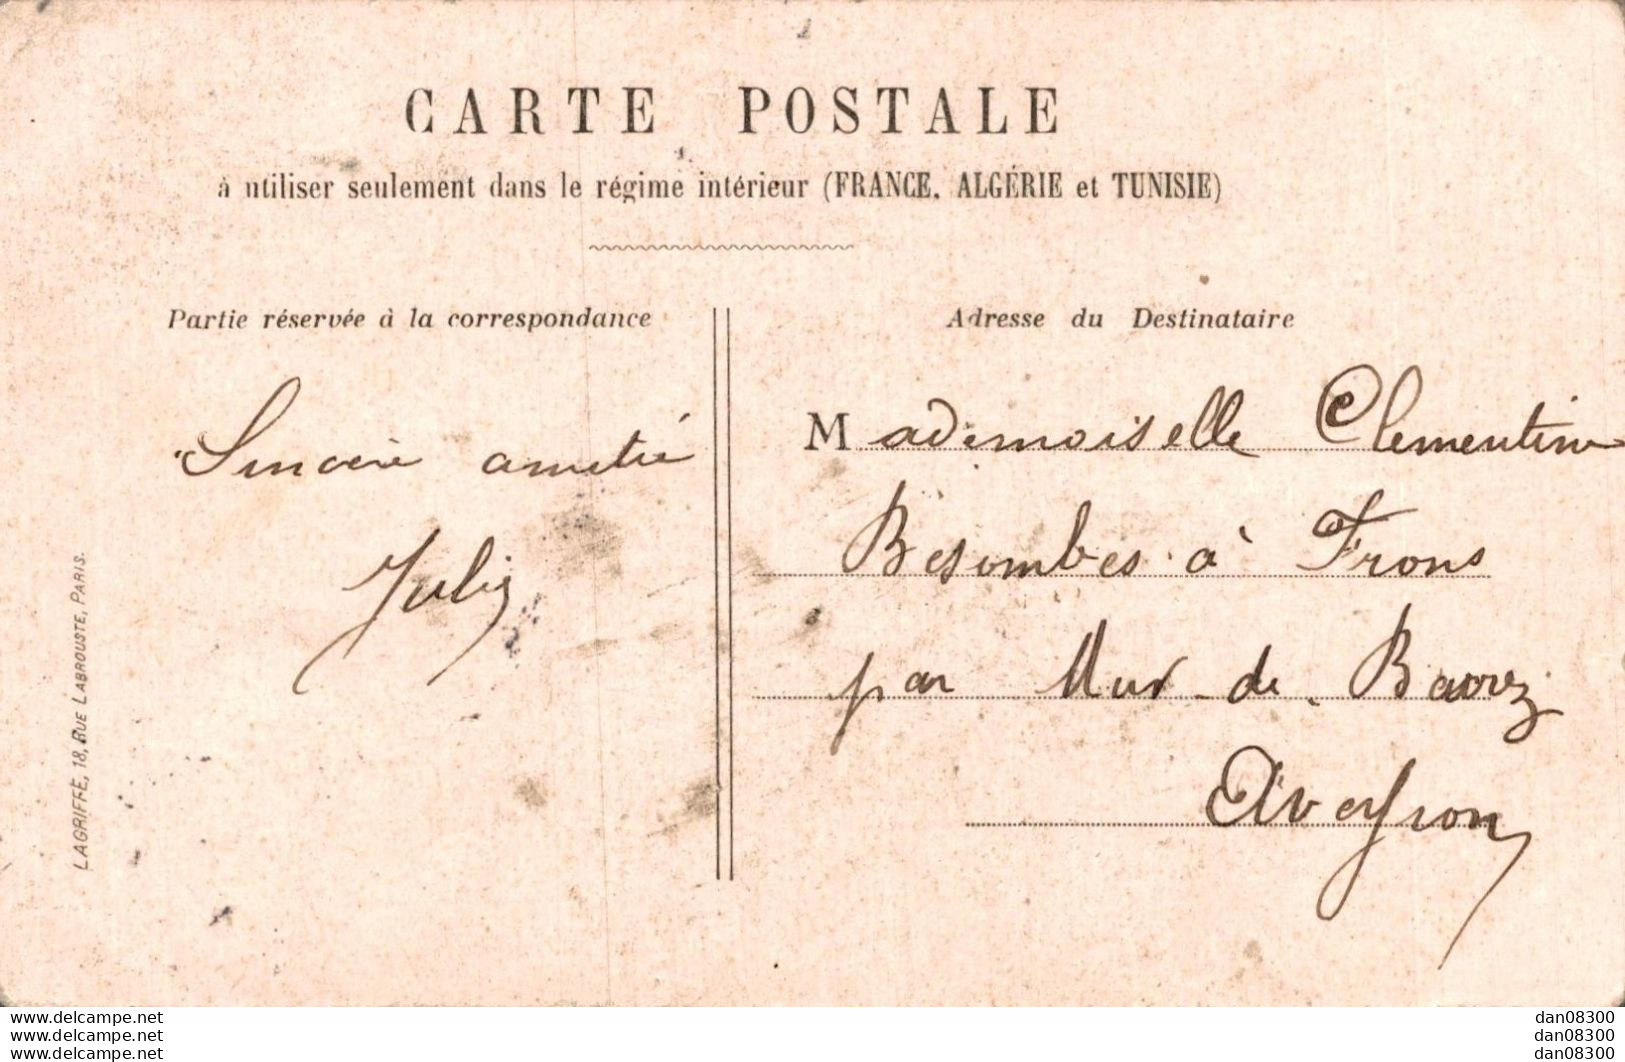 CARTE POSTALE
à utiliser seulement dans le régime intérieur (FRANCE, ALGÉRIE et TUNISIE)
Partie réservée à la correspondance
Sincère amitié
Julia
LAGRIFFE, 18, RUE LABROUSTE, PARIS.
Adresse du Destinataire
Mademoiselle Clementine
Besombes à Frons
par Mur-de-Barrez
Aveyron
www.delcampe.net
www.delcampe.net
www.delcampe.net
dan08300
dan08300
dan08300